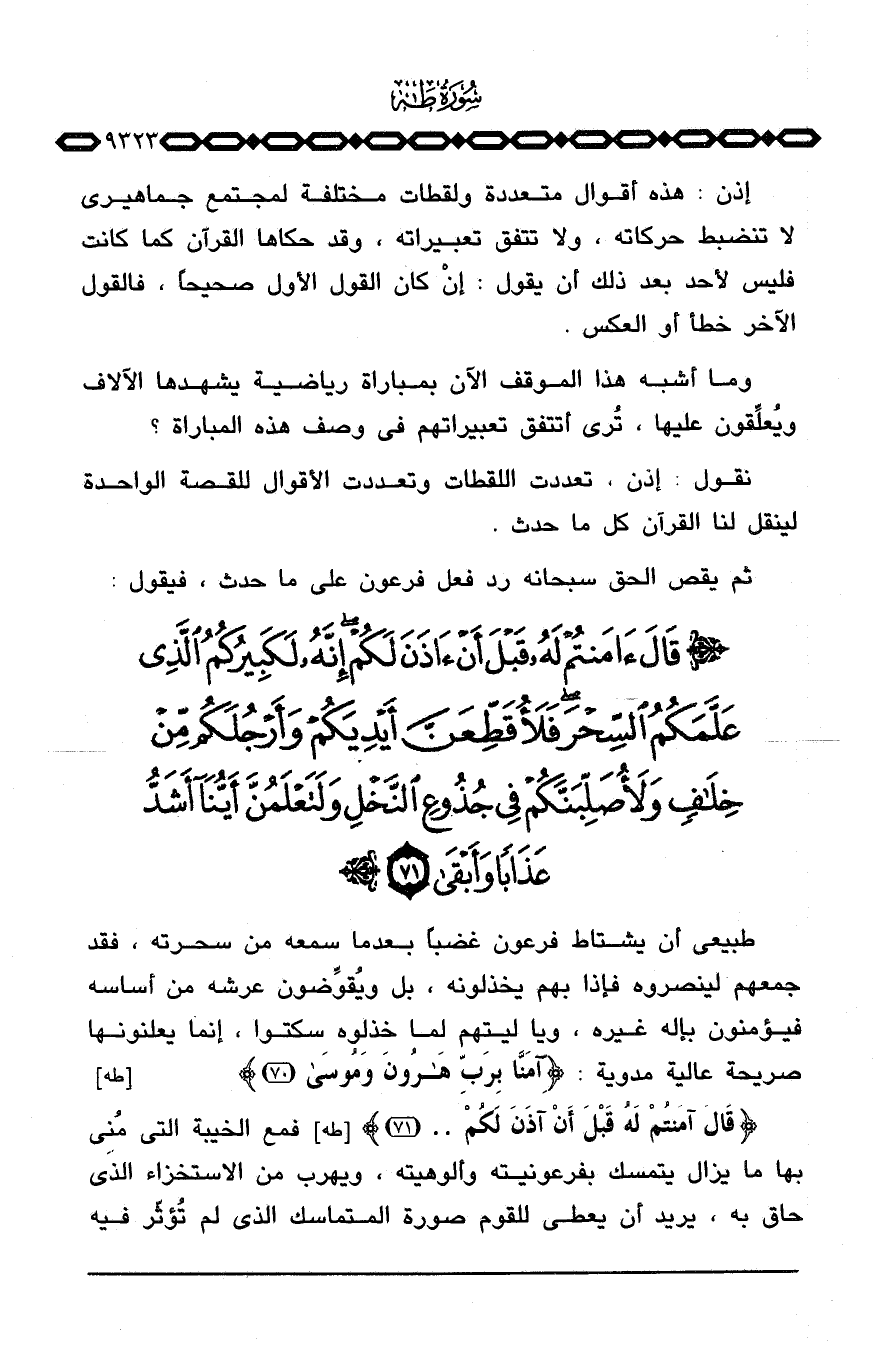 سُورَةُ طٰهٰ
٩٣٢٣
إذن : هذه أقوال متعددة ولقطات مختلفة لمجتمع جماهيرى
لا تنضبط حركاته ، ولا تتفق تعبيراته ، وقد حكاها القرآن كما كانت
فليس لأحد بعد ذلك أن يقول : إنْ كان القول الأول صحيحاً ، فالقول
الآخر خطأ أو العكس .
وما أشبه هذا الموقف الآن بمباراة رياضية يشهدها الآلاف
ويُعلِّقون عليها ، تُرى أتتفق تعبيراتهم فى وصف هذه المباراة ؟
نقول : إذن ، تعددت اللقطات وتعددت الأقوال للقصة الواحدة
لينقل لنا القرآن كل ما حدث .
ثم يقص الحق سبحانه رد فعل فرعون على ما حدث ، فيقول :
قَالَ ءَامَنتُمْ لَهُۥ قَبْلَ أَنْ ءَاذَنَ لَكُمْۖ إِنَّهُۥ لَكَبِيرُكُمُ ٱلَّذِى
عَلَّمَكُمُ ٱلسِّحْرَۖ فَلَأُقَطِّعَنَّ أَيْدِيَكُمْ وَأَرْجُلَكُم مِّنْ
خِلَٰفٍ وَلَأُصَلِّبَنَّكُمْ فِى جُذُوعِ ٱلنَّخْلِ وَلَتَعْلَمُنَّ أَيُّنَآ أَشَدُّ
عَذَابًا وَأَبْقَىٰ ٧١
طبيعى أن يشتاط فرعون غضباً بعدما سمعه من سحرته ، فقد
جمعهم لينصروه فإذا بهم يخذلونه ، بل ويُقوِّضون عرشه من أساسه
فيؤمنون بإله غيره ، ويا ليتهم لما خذلوه سكتوا ، إنما يعلنونها
صريحة عالية مدوية : ﴿آمَنَّا بِرَبِّ هَـٰرُونَ وَمُوسَىٰ (٧٠)﴾ [طه]
﴿قَالَ آمَنتُمْ لَهُ قَبْلَ أَنْ آذَنَ لَكُمْ .. (٧١)﴾ [طه] فمع الخيبة التى مُنِى
بها ما يزال يتمسك بفرعونيته وألوهيته ، ويهرب من الاستخزاء الذى
حاق به ، يريد أن يعطى للقوم صورة المتماسك الذى لم تُؤثِّر فيه